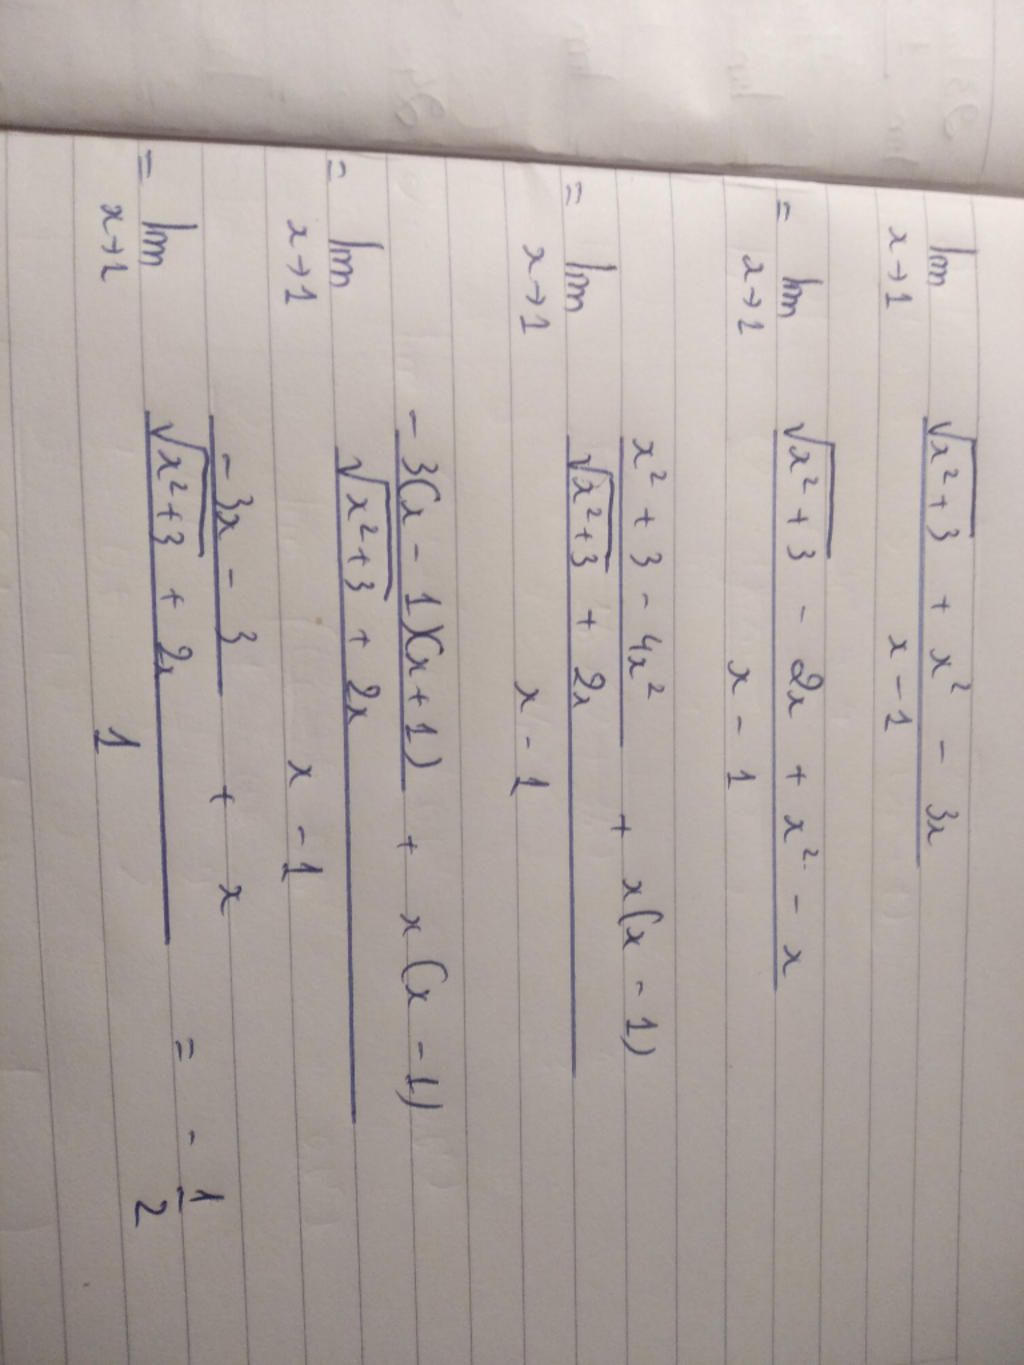 lim x→1 (√(x²+3) + x² - 3x)/(x - 1)
= lim x→1 (√(x²+3) - 2x + x² - x)/(x - 1)
= lim x→1 ((x² + 3 - 4x²)/(√(x²+3) + 2x) + x(x - 1))/(x - 1)
= lim x→1 ((-3(x - 1)(x + 1))/(√(x²+3) + 2x) + x(x - 1))/(x - 1)
= lim x→1 ((-3x - 3)/(√(x²+3) + 2x) + x)/1 = -1/2